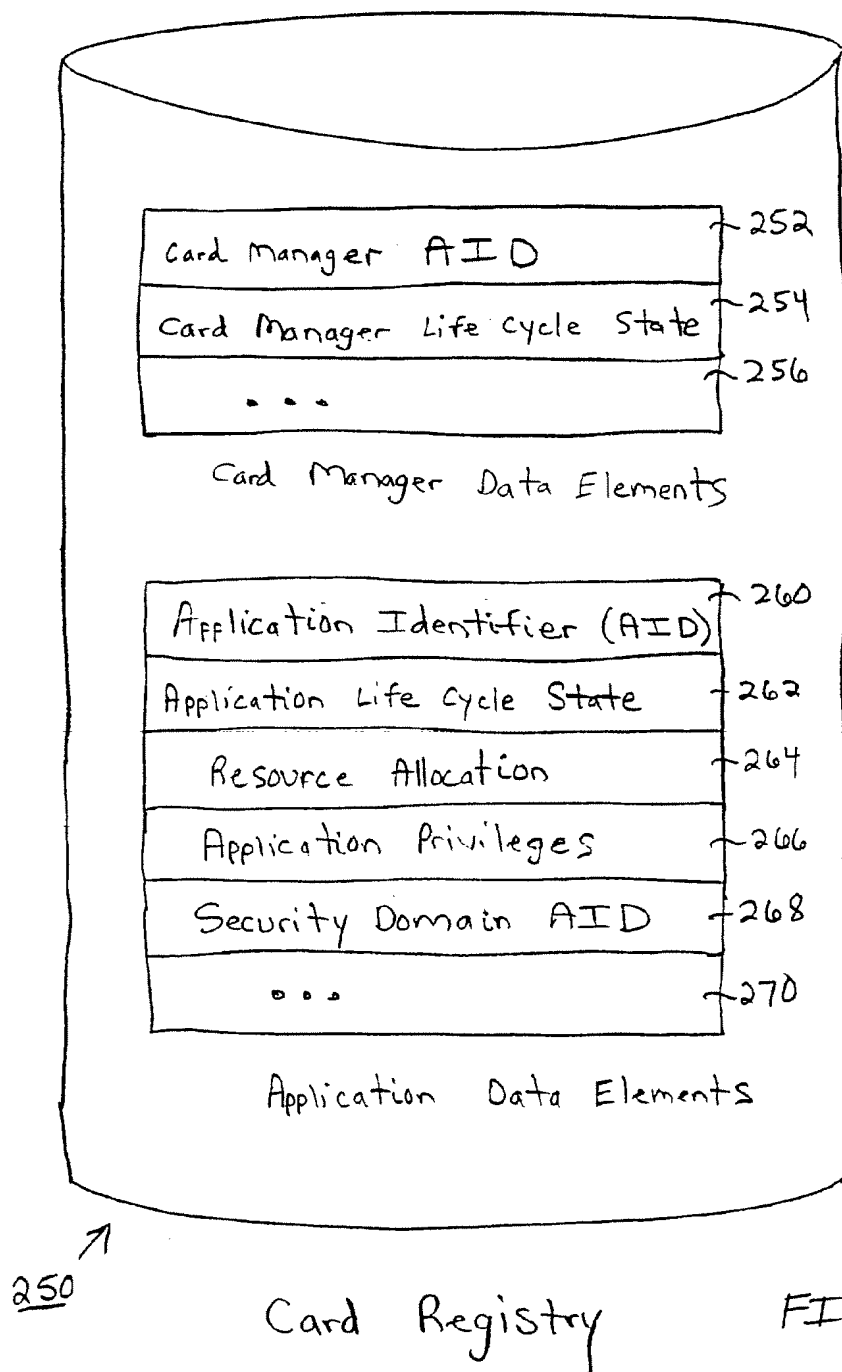 Card Manager AID 252
Card Manager Life Cycle State 254
... 256
Card Manager Data Elements
Application Identifier (AID) 260
Application Life Cycle State 262
Resource Allocation 264
Application Privileges 266
Security Domain AID 268
... 270
Application Data Elements
250
Card Registry FI